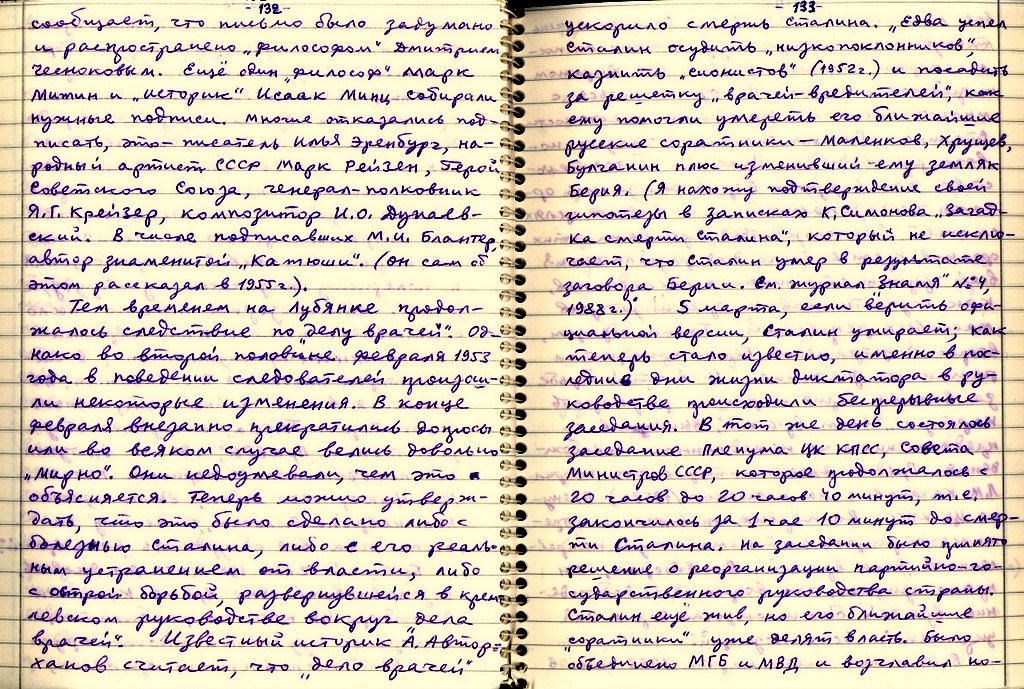 - 132 -
сообщает, что письмо было задумано
и распространено „философом" Дмитрием
Чесноковым. Ещё один „философ" Марк
Митин и „историк" Исаак Минц собирали
нужные подписи. Многие отказались под-
писать, это - писатель Илья Эренбург, на-
родный артист СССР Марк Рейзен, Герой
Советского Союза, генерал-полковник
Я.Г. Крейзер, композитор И.О. Дунаев-
ский. В числе подписавших М.И. Блантер,
автор знаменитой „Катюши". (Он сам об
этом рассказал в 1955г.).
Тем временем на Лубянке продол-
жалось следствие по „делу врачей". Од-
нако во второй половине февраля 1953
года в поведении следователей произош-
ли некоторые изменения. В конце
февраля внезапно прекратились допросы
или во всяком случае велись довольно
„мирно". Они недоумевали, чем это
объясняется. Теперь можно утверж-
дать, что это было сделано либо с
болезнью Сталина, либо с его реаль-
ным устранением от власти, либо
с острой борьбой, развернувшейся в крем-
левском руководстве вокруг дела
врачей". Известный историк А. Автор-
ханов считает, что „дело врачей"
- 133 -
ускорило смерть Сталина. „Едва успел
Сталин осудить „низкопоклонников",
казнить „сионистов" (1952г.) и посадить
за решетку „врачей-вредителей", как
ему помогли умереть его ближайшие
русские соратники - Маленков, Хрущев,
Булганин плюс изменивший ему земляк
Берия. (Я нахожу подтверждение своей
гипотезы в записках К.Симонова „Загад-
ка смерти Сталина", который не исклю-
чает, что Сталин умер в результате
заговора Берии. См. журнал „Знамя" №4,
1988г.)." 5 марта, если верить офи-
циальной версии, Сталин умирает; как
теперь стало известно, именно в пос-
ледние дни жизни диктатора в ру-
ководстве происходили беспрерывные
заседания. В тот же день состоялось
заседание Пленума ЦК КПСС, Совета
Министров СССР, которое продолжалось с
20 часов до 20 часов 40 минут, т.е.
закончилось за 1 час 10 минут до смер-
ти Сталина. На заседании было принято
решение о реорганизации партийно-го-
сударственного руководства страны.
Сталин ещё жив, но его ближайшие
„соратники" уже делят власть. Было
объединено МГБ и МВД и возглавил но-